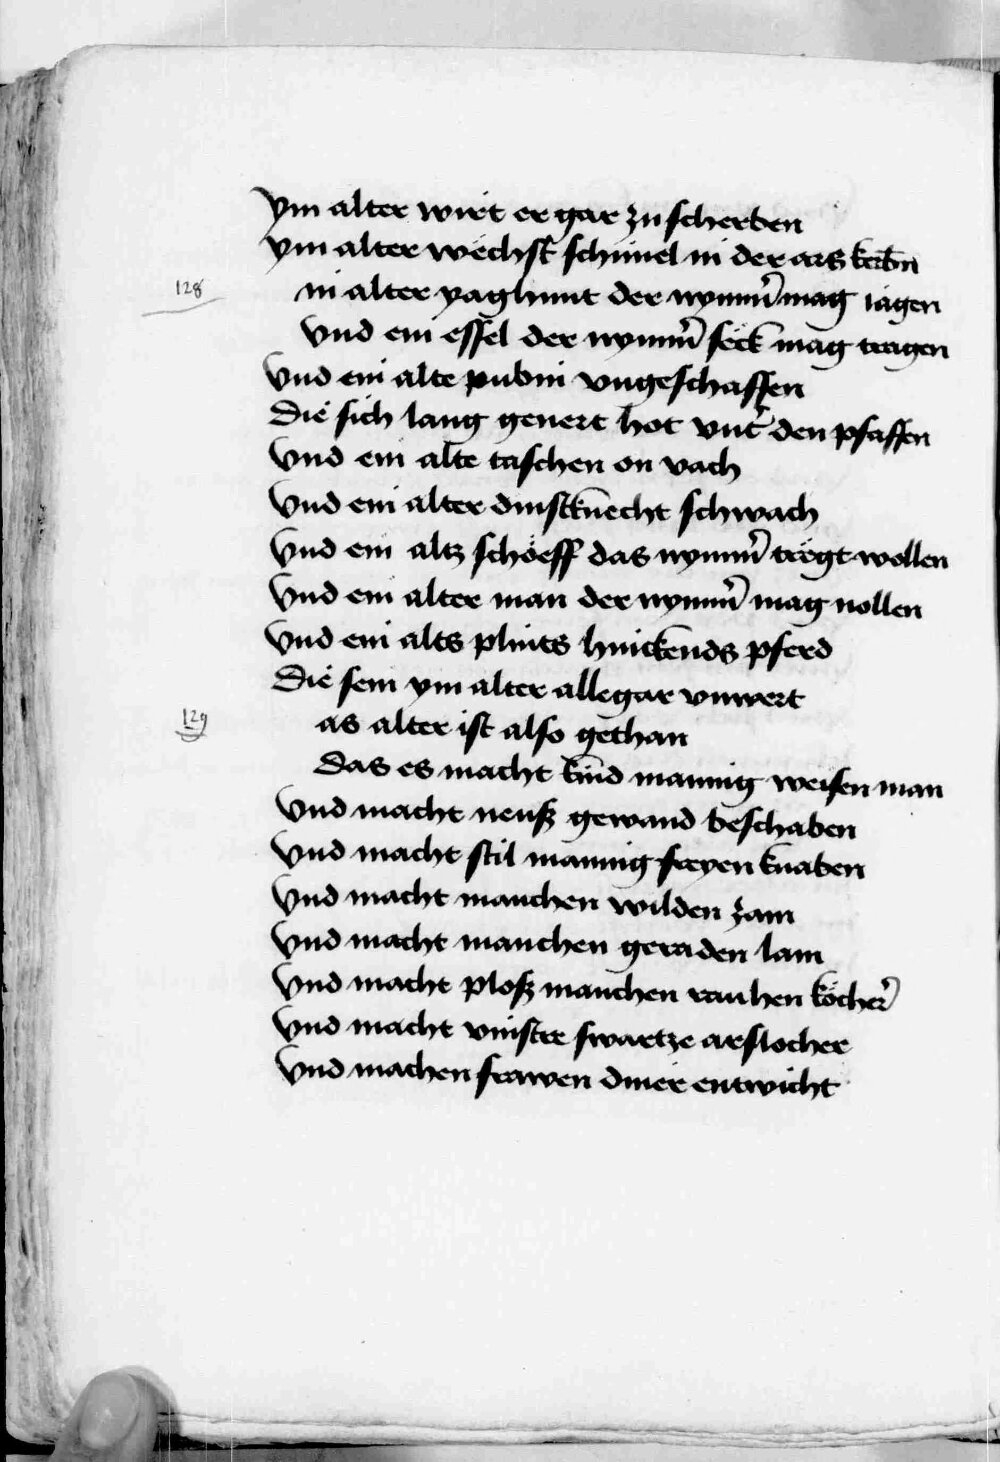 Ym alter wirt er gar zu scherben
Ym alter wechst schimel in der ars kerbn̄
128
in alter yaghunt der nymm̄ mag iagen
Vnd ein essel der nymm̄ seck mag tragen
Vnd ein alte pubin vngeschaffen
Die sich lang genert hot vnt' den pfaffen
Vnd ein alte taschen on vach
Vnd ein alter dinstknecht schwach
Vnd ein altz schoeff das nymm̄ tregt wollen
Vnd ein alter man der nymm̄ mag nollen
Vnd ein alts plints hinckends pferd
Die sein ym alter allegar vnwert
129
as alter ist also gethan
Das es macht kind mannig weisen man
Vnd macht neuß gewand beschaben
Vnd macht stil mannig freyen knaben
Vnd macht manchen wilden zam
Vnd macht manchen geraden lam
Vnd macht ploß manchen rauhen kocher'
Vnd macht vinster swartze arslocher
Vnd machen frawen diner entwicht